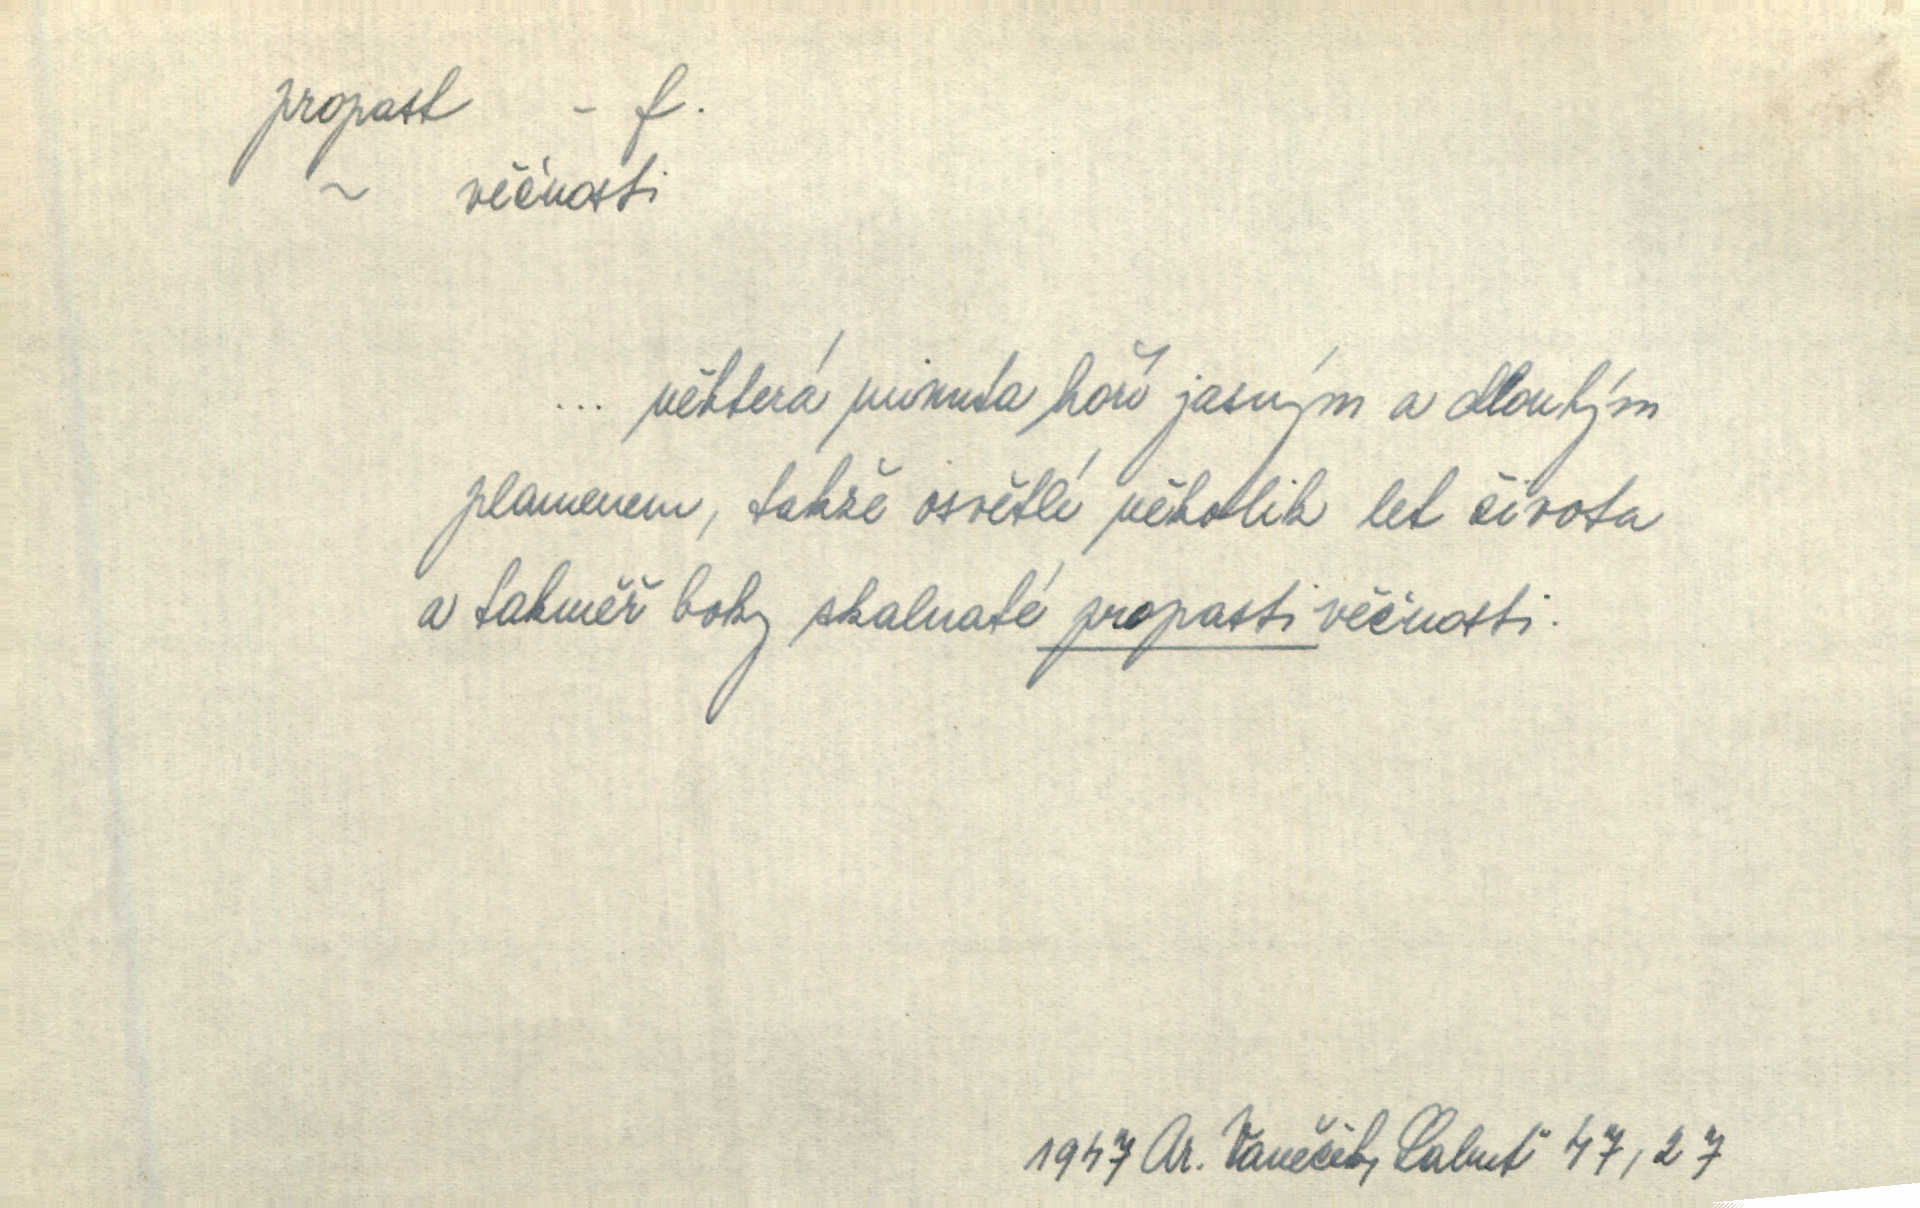 propast - f.
~ věčnosti
... některá minuta hoří jasným a dlouhým
plamenem, takže osvětlí několik let života
a takměř boky skalnaté propasti věčnosti.
1947 Ar. Vaněček, 47, 27